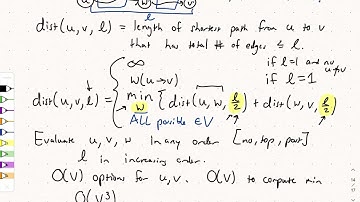 dist(u, v, l) = length of shortest path from u to v
that has total # of edges ≤ l.
∞ if l = 1 and no u→v
w(u→v) if l = 1
dist(u, v, l) = min {dist(u, w, l/2) + dist(w, v, l/2)}
w
All possible ∈V
Evaluate u, v, w in any order [no, top, post]
l in increasing order.
O(V) options for u, v. O(V) to compute min
O(V³)